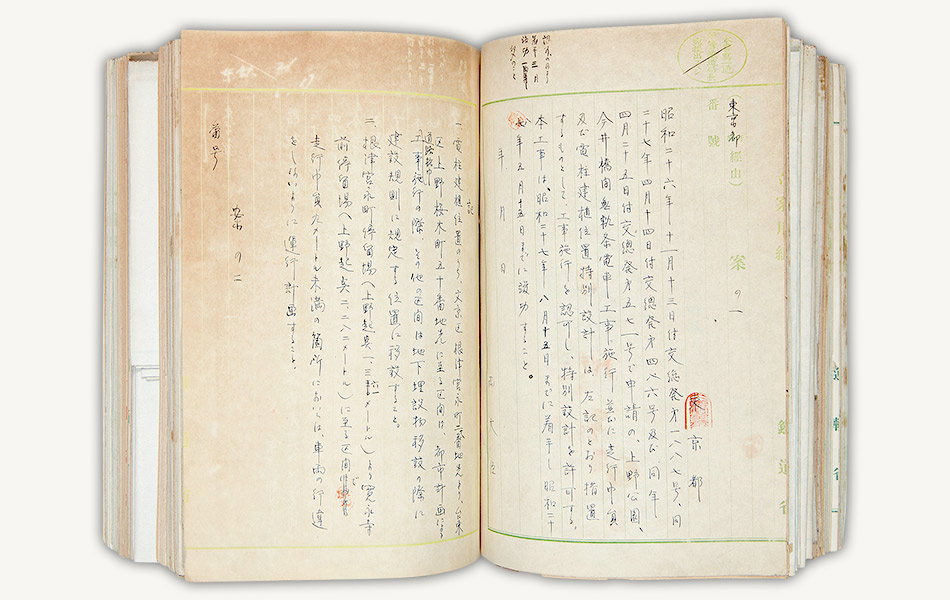 (東京都経由)
番號
案の一
東京都
昭和二十六年十一月十三日付交総発第一八八七号、同
二十七年四月十四日付交総発第四八六号及び同年
四月二十五日付交総発第五七一号で申請の、上野公園、
今井橋間無軌条電車工事施行並びに走行中負
及び電柱建植位置特別設計は、左記のとおり措置
するものとして、工事施行を認可し、特別設計を許可する。
本工事は、昭和二十七年八月十五日までに着手し昭和二十
八年五月十五日までに竣功すること。
年 月 日
大臣
記
一、電柱建植位置のうち、文京区根津宮永町二番地先より、台東
区上野桜木町五十番地先に至る区間は、都市計画による
道路拡巾
工事施行の際、その他の区間は地下埋設物移設の際に
建設規則に規定する位置に移設すること。
二、根津宮永町停留場(上野起点一、三メートル)より寛永寺
前停留場(上野起点二、二八二メートル)に至る区間で
走行中負九メートル未満の箇所においては、車両の行違
をしないように運行計画すること。
番号
案の二